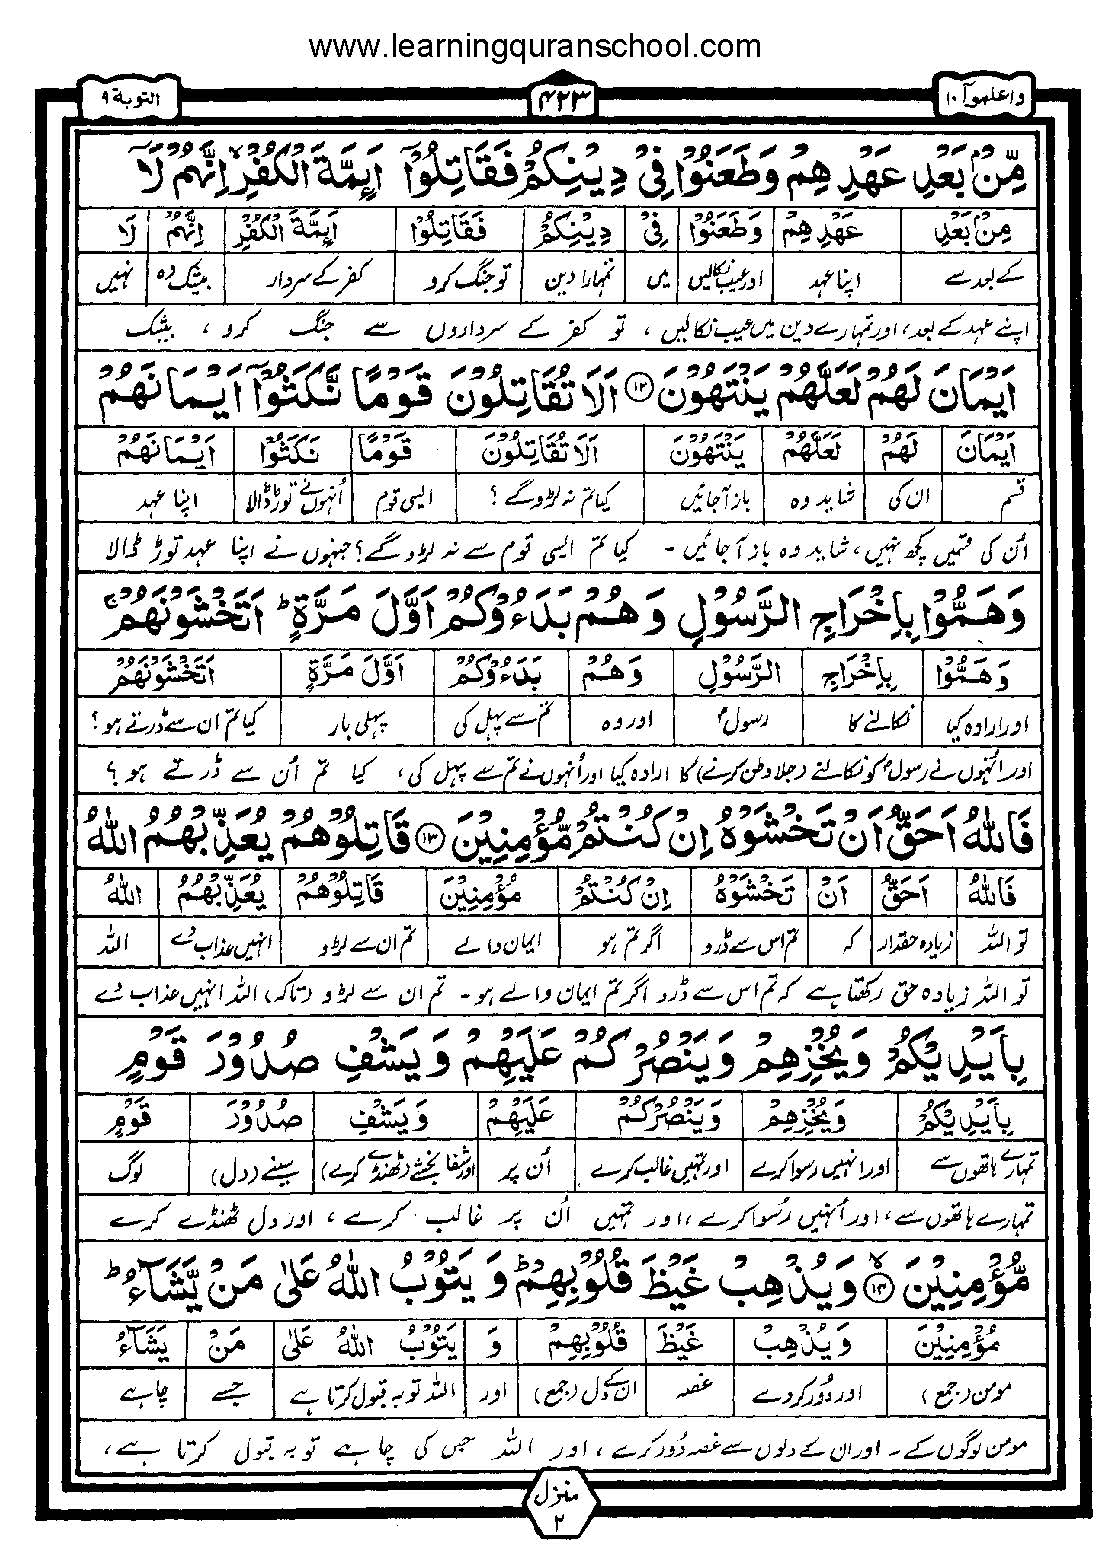 www.learningquranschool.com
واعلموآ ۱۰ ۴۲۳ التوبة ۹
مِّنْۢ بَعْدِ عَهْدِهِمْ وَطَعَنُوْا فِیْ دِیْنِكُمْ فَقَاتِلُوْۤا اَىِٕمَّةَ الْكُفْرِۙ اِنَّهُمْ لَاۤ
مِنْۢ بَعْدِ عَهْدِهِمْ وَطَعَنُوْا فِیْ دِیْنِكُمْ فَقَاتِلُوْا اَىِٕمَّةَ الْكُفْرِ اِنَّهُمْ لَا
کے بعد سے اپنا عہد اور عیب نکالیں میں تمہارا دین تو جنگ کرو کفر کے سردار بیشک وہ نہیں
اپنے عہد کے بعد، اور تمہارے دین میں عیب نکالیں، تو کفر کے سرداروں سے جنگ کرو، بیشک
اَیْمَانَ لَهُمْ لَعَلَّهُمْ یَنْتَهُوْنَ ۱۲ اَلَا تُقَاتِلُوْنَ قَوْمًا نَّكَثُوْۤا اَیْمَانَهُمْ
اَیْمَانَ لَهُمْ لَعَلَّهُمْ یَنْتَهُوْنَ اَلَا تُقَاتِلُوْنَ قَوْمًا نَكَثُوْا اَیْمَانَهُمْ
قسم ان کی شاید وہ باز آجائیں کیا تم نہ لڑو گے؟ ایسی قوم اُنہوں نے توڑ ڈالا اپنا عہد
اُن کی قسمیں کچھ نہیں، شاید وہ باز آ جائیں - کیا تم ایسی قوم سے نہ لڑو گے؟ جنہوں نے اپنا عہد توڑ ڈالا
وَهَمُّوْا بِاِخْرَاجِ الرَّسُوْلِ وَهُمْ بَدَءُوْكُمْ اَوَّلَ مَرَّةٍ ؕ اَتَخْشَوْنَهُمْ ۚ
وَهَمُّوْا بِاِخْرَاجِ الرَّسُوْلِ وَهُمْ بَدَءُوْكُمْ اَوَّلَ مَرَّةٍ اَتَخْشَوْنَهُمْ
اور ارادہ کیا نکالنے کا رسولؐ اور وہ تم سے پہل کی پہلی بار کیا تم ان سے ڈرتے ہو؟
اور انہوں نے رسولؐ کو نکالنے (جلا وطن کرنے) کا ارادہ کیا اور اُنہوں نے تم سے پہل کی، کیا تم اُن سے ڈرتے ہو؟
فَاللّٰهُ اَحَقُّ اَنْ تَخْشَوْهُ اِنْ كُنْتُمْ مُّؤْمِنِیْنَ ۱۳ قَاتِلُوْهُمْ یُعَذِّبْهُمُ اللّٰهُ
فَاللّٰهُ اَحَقُّ اَنْ تَخْشَوْهُ اِنْ كُنْتُمْ مُؤْمِنِیْنَ قَاتِلُوْهُمْ یُعَذِّبْهُمُ اللّٰهُ
تو اللہ زیادہ حقدار کہ تم اس سے ڈرو اگر تم ہو ایمان والے تم ان سے لڑو انہیں عذاب دے اللہ
تو اللہ زیادہ حق رکھتا ہے کہ تم اس سے ڈرو اگر تم ایمان والے ہو - تم ان سے لڑو (تاکہ) اللہ انہیں عذاب دے
بِاَیْدِیْكُمْ وَیُخْزِهِمْ وَیَنْصُرْكُمْ عَلَیْهِمْ وَیَشْفِ صُدُوْرَ قَوْمٍ
بِاَیْدِیْكُمْ وَیُخْزِهِمْ وَیَنْصُرْكُمْ عَلَیْهِمْ وَیَشْفِ صُدُوْرَ قَوْمٍ
تمہارے ہاتھوں سے اور انہیں رسوا کرے اور تمہیں غالب کرے اُن پر اور شفا بخشے (ٹھنڈے کرے) سینے (دل) لوگ
تمہارے ہاتھوں سے، اور اُنہیں رُسوا کرے، اور تمہیں اُن پر غالب کرے، اور دل ٹھنڈے کرے
مُّؤْمِنِیْنَ ۙ۱۴ وَیُذْهِبْ غَیْظَ قُلُوْبِهِمْ ؕ وَیَتُوْبُ اللّٰهُ عَلٰی مَنْ یَّشَآءُ ؕ
مُؤْمِنِیْنَ وَیُذْهِبْ غَیْظَ قُلُوْبِهِمْ وَ یَتُوْبُ اللّٰهُ عَلٰی مَنْ یَشَآءُ
مومن (جمع) اور دُور کر دے غصہ ان کے دل (جمع) اور اللہ توبہ قبول کرتا ہے جسے چاہے
مومن لوگوں کے - اور ان کے دلوں سے غصہ دُور کرے، اور اللہ جس کی چاہے توبہ قبول کرتا ہے،
منزل
۲